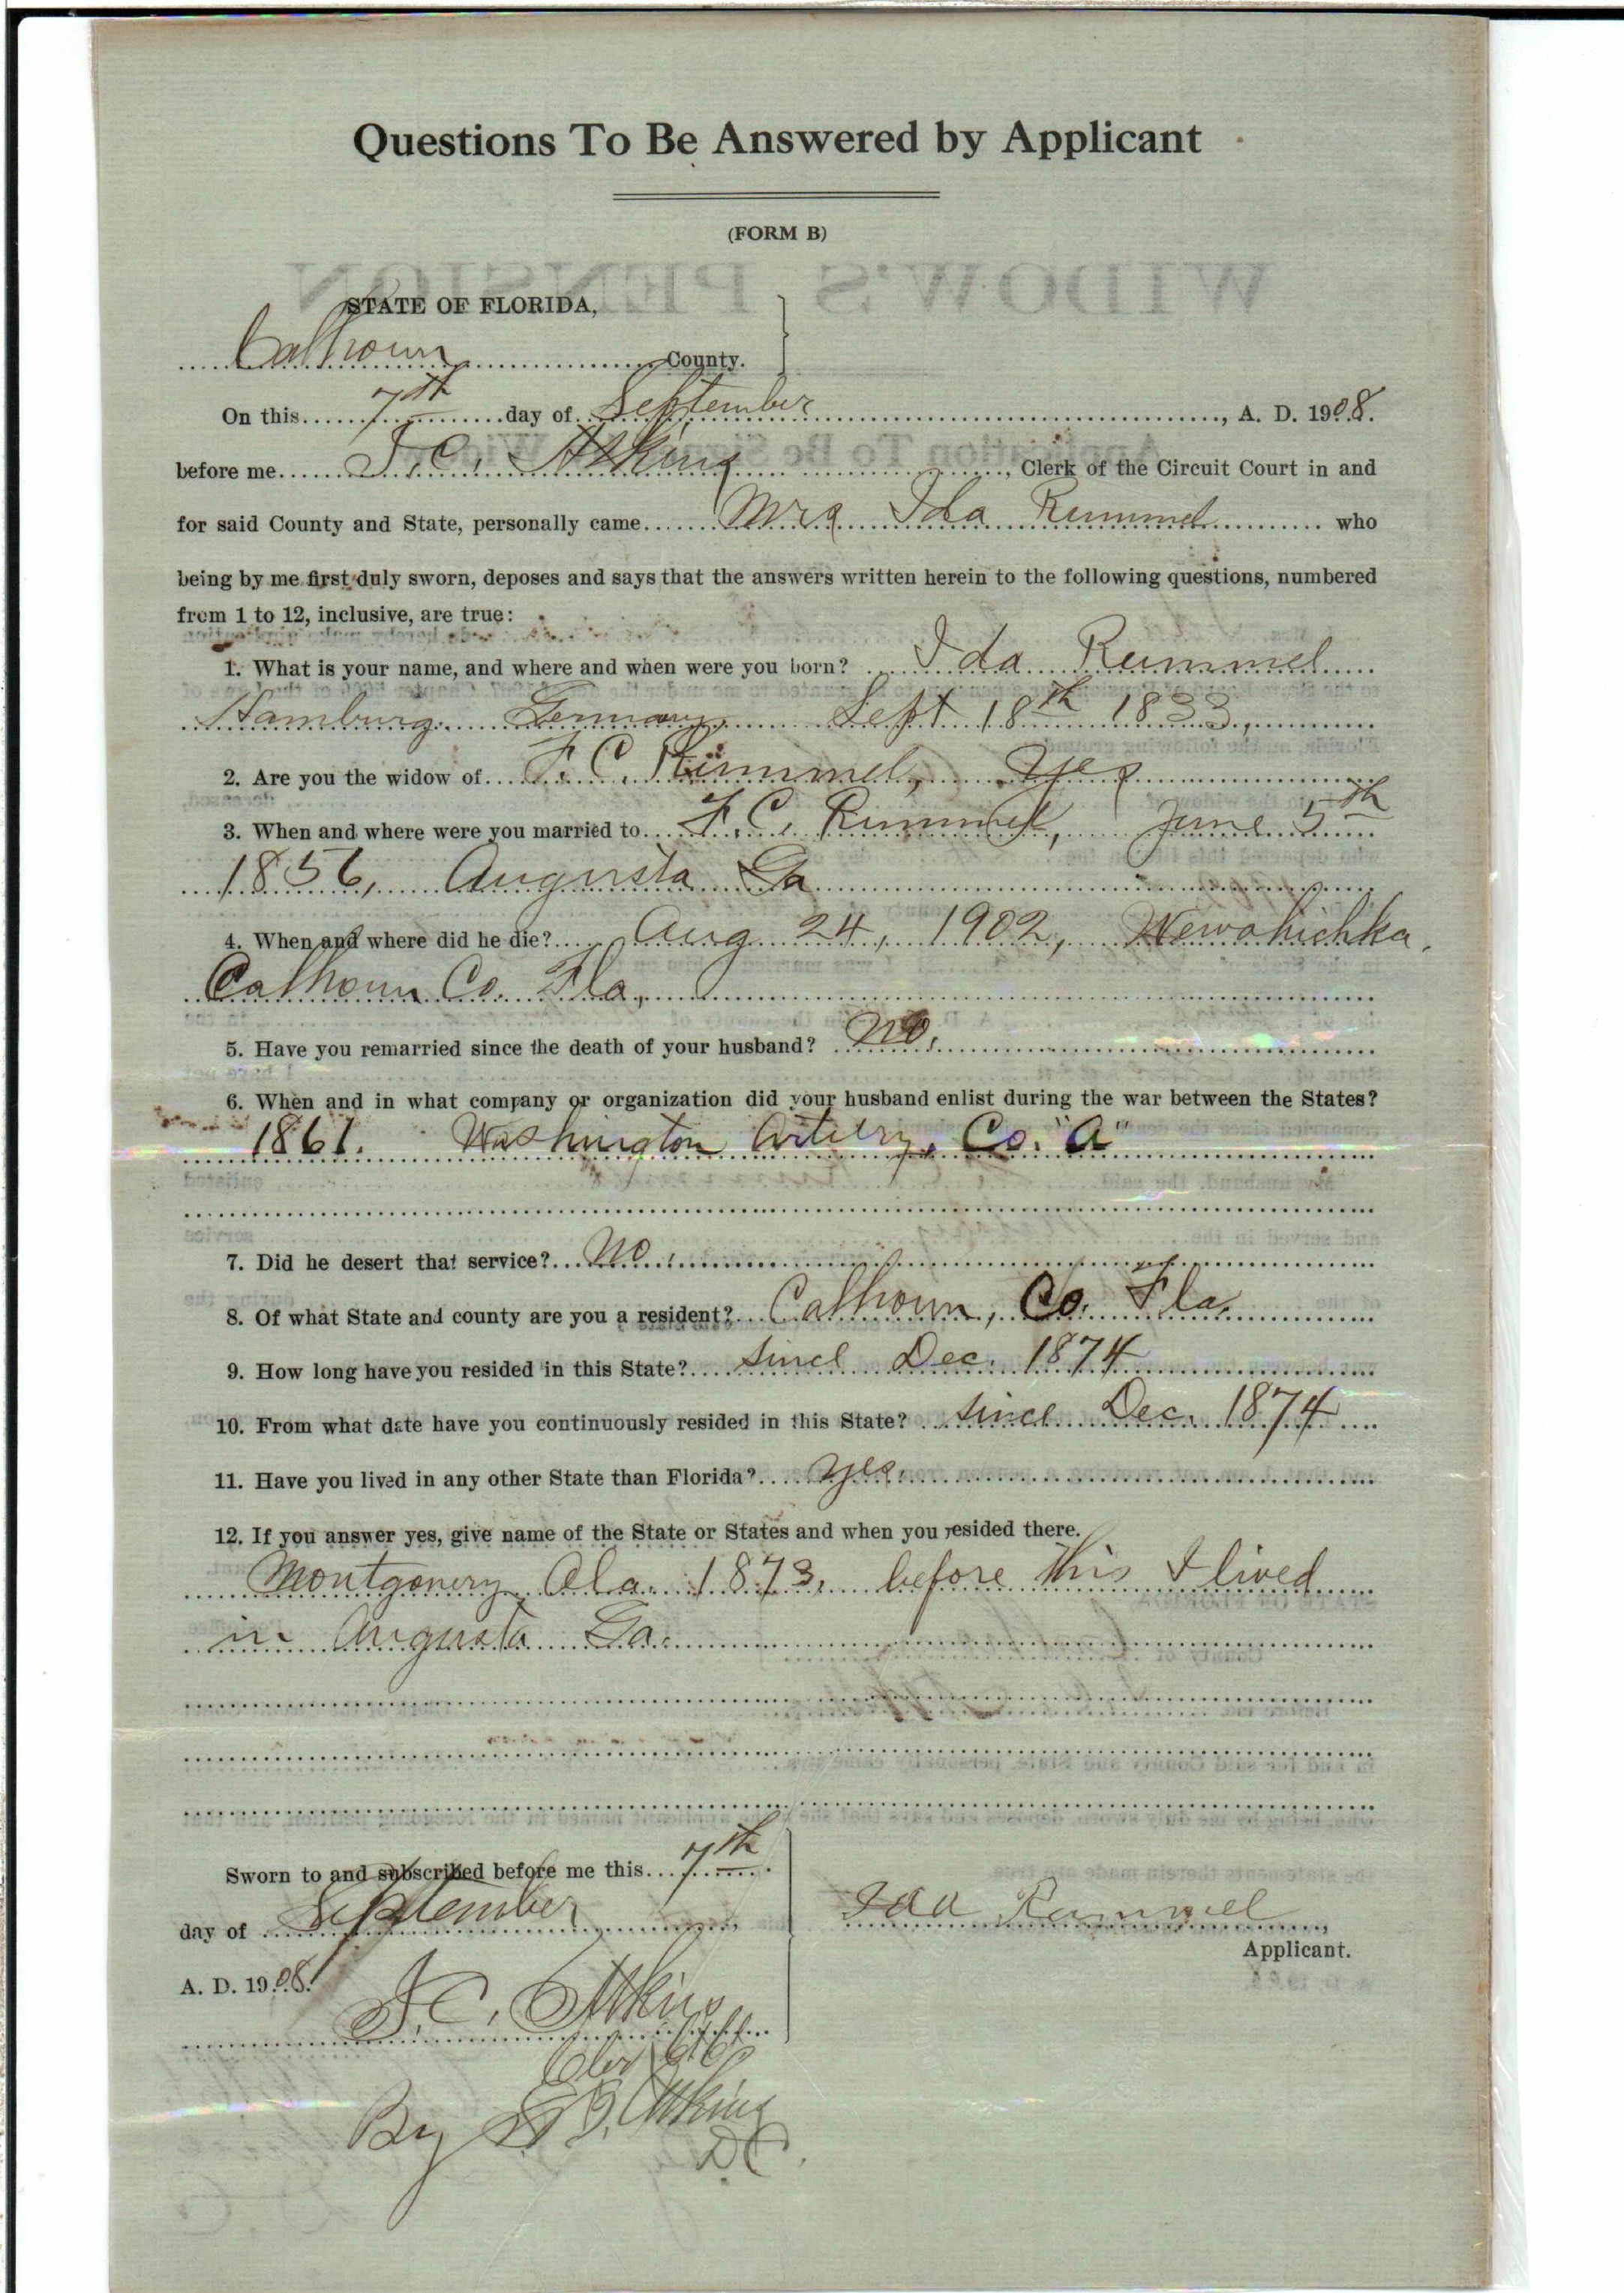 Questions To Be Answered by Applicant
(FORM B)
STATE OF FLORIDA,
Calhoun County.
On this 7th day of September, A. D. 1908.
before me J. C. Atkins, Clerk of the Circuit Court in and
for said County and State, personally came Mrs Ida Rummel who
being by me first duly sworn, deposes and says that the answers written herein to the following questions, numbered
from 1 to 12, inclusive, are true:
1. What is your name, and where and when were you born? Ida Rummel
Hamburg Germany Sept 18th 1833,
2. Are you the widow of F. C. Rümmel, Yes
3. When and where were you married to F. C. Rummel, June 5th
1856, Augusta Ga
4. When and where did he die? Aug 24, 1902, Wewahichka.
Calhoun Co. Fla,
5. Have you remarried since the death of your husband? No.
6. When and in what company or organization did your husband enlist during the war between the States?
1861. Washington Co. "A"
7. Did he desert that service? No.
8. Of what State and county are you a resident? Calhoun, Co. Fla.
9. How long have you resided in this State? Since Dec. 1874
10. From what date have you continuously resided in this State? Since Dec. 1874
11. Have you lived in any other State than Florida? Yes.
12. If you answer yes, give name of the State or States and when you resided there.
Montgomery Ala. 1873. before this I lived
in Augusta Ga.
Sworn to and subscribed before me this 7th
day of September,
Ida Rummel,
Applicant.
A. D. 1908.
J. C. Atkins
By Atkins
D.C.